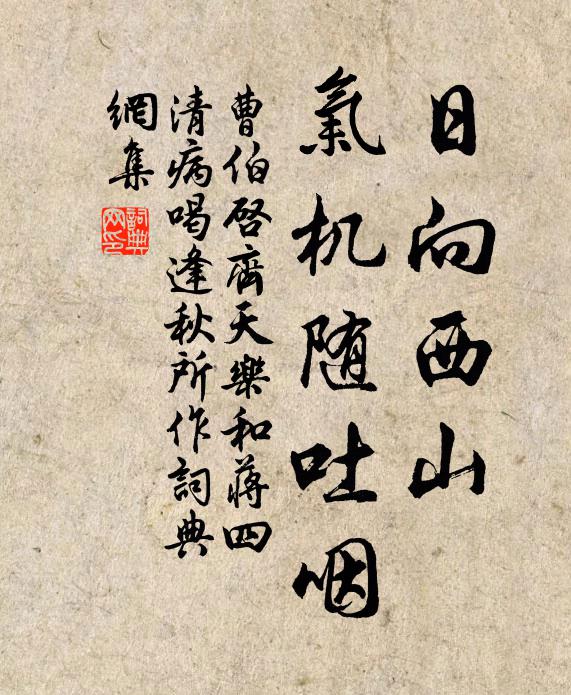 日向西山
氣机随吐咽
曹伯啓齊天樂和蔣四
清病喝逢秋所作詞典
網集
詞典
网印